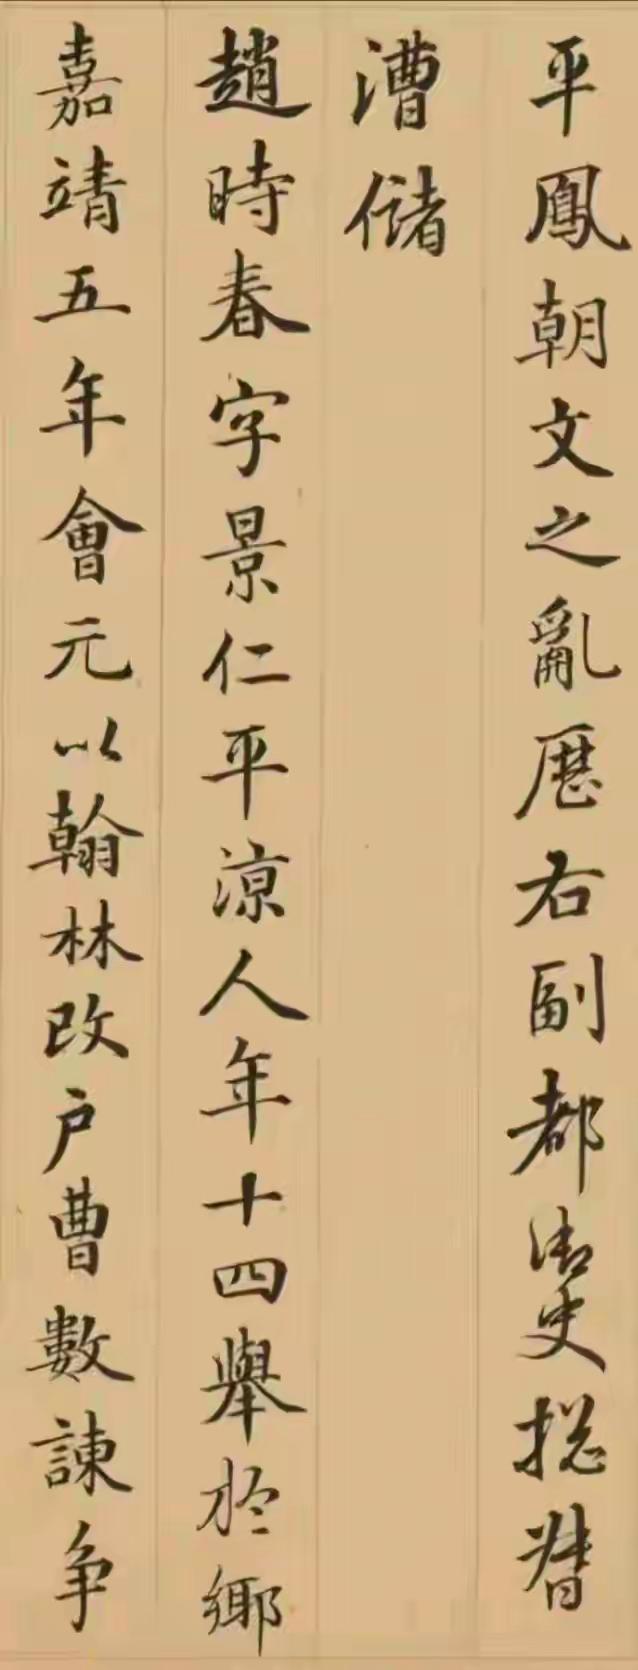 平鳳朝文之亂歷右副都御史揔督
漕儲
趙時春字景仁平涼人年十四舉於鄉
嘉靖五年會元以翰林改戶曹數諫争